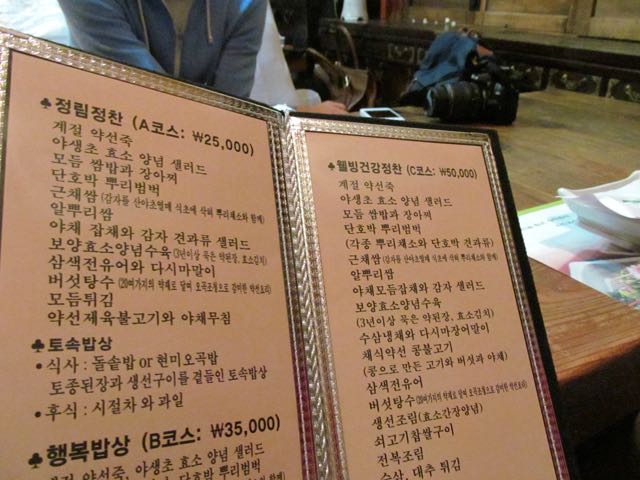 ♣정림정찬 (A코스: ₩25,000)
계절 약선죽
야생초 효소 양념 샐러드
모듬 쌈밥과 장아찌
단호박 뿌리범벅
근채쌈(감자를 산야초열매 식초에 삭혀 뿌리채소와 함께)
알뿌리쌈
야채 잡채와 감자 견과류 샐러드
보양효소양념수육(3년이상 묵은 약된장, 효소김치)
삼색전유어와 다시마말이
버섯탕수(20여가지의 약재로 달여 오곡조청으로 갈비한 약선요리)
모듬튀김
약선제육불고기와 야채무침
♣토속밥상
•식사 : 돌솥밥 or 현미오곡밥
토종된장과 생선구이를 곁들인 토속밥상
•후식 : 시절차와 과일
♣행복밥상 (B코스: ₩35,000)
계절 약선죽, 야생초 효소 양념 샐러드
♣웰빙건강정찬 (C코스: ₩50,000)
계절 약선죽
야생초 효소 양념 샐러드
모듬 쌈밥과 장아찌
단호박 뿌리범벅
(각종 뿌리채소와 단호박 견과류)
근채쌈(감자를 산야초열매 식초에 삭혀 뿌리채소와 함께)
알뿌리쌈
야채모듬잡채와 감자 샐러드
보양효소양념수육
(3년이상 묵은 약된장, 효소김치)
수삼냉채와 다시마장어말이
채식약선 콩불고기
(콩으로 만든 고기와 버섯과 야채)
삼색전유어
버섯탕수(20여가지의 약재로 달여 오곡조청으로 갈비한 약선요리)
생선조림(효소간장양념)
쇠고기찹쌀구이
전복조림
수삼, 대추 튀김